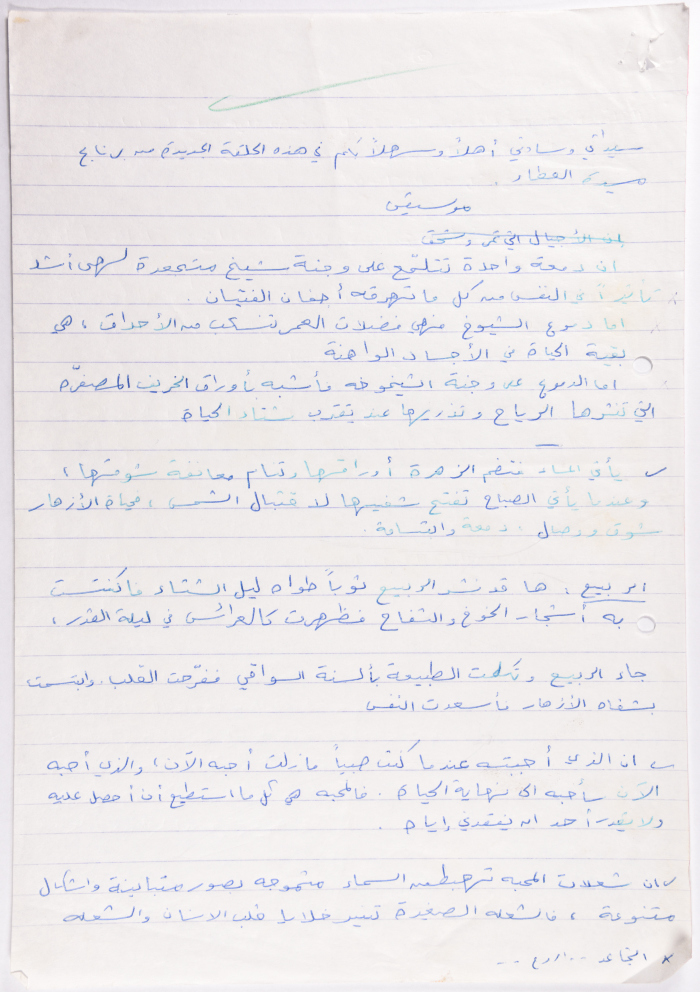 سيداتي وسادتي أهلاً وسهلاً بكم في هذه الحلقة الجديدة من برنامج
مسيرة العطاء .
موسيقى
الأجيال التي تمر وتسحق
ان دمعة واحدة تتلمّع على وجنة شيخ متجعدة لهي أشد
تأثيراً في النفس من كل ما تهرقه أجفان الفتيان .
اما دموع الشيوخ فهي فضلات العمر تنسكب من الأحداق ، هي
بقية الحياة في الأجساد الواهنة
اما الدموع على وجنة الشيخوخه فأشبه بأوراق الخريف المصفرّه
التي تنثرها الرياح وتذريها عند يقترب شتاء الحياة
يأتي المساء فتضم الزهرة أوراقها وتنام معانقة شوقها ،
وعندما يأتي الصباح تفتح شفتيها لاقتبال الشمس ، فحياة الأزهار
شوق ووصال . دمعة وابتسامة .
الربيع : ها قد نشر الربيع ثوباً طواه ليل الشتاء فاكتست
به أشجار الخوخ والتفاح فظهرت كالعرائس في ليلة القدر ،
جاء الربيع وتكلمت الطبيعة بألسنة السواقي ففرّحت القلب . وابتسمت
بشفاه الأزهار فأسعدت النفس
ان الذي أحببته عندما كنت صبياً مازلت أحبه الآن ، والذي أحبه
الآن سأحبه الى نهاية الحياة . فالمحبه هي كل ما استطيع أن أحصل عليه
ولا يقدر أحد ان يفقدني إياه .
ان شعلات المحبه تهبط من السماء متموجه بصور متباينة واشكال
متنوعة ، فالشعله الصغيرة تنير خلايا قلب الانسان والشعله